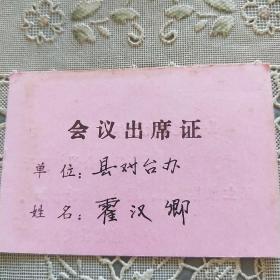 会议出席证
单位：县对台办
姓名：霍汉卿